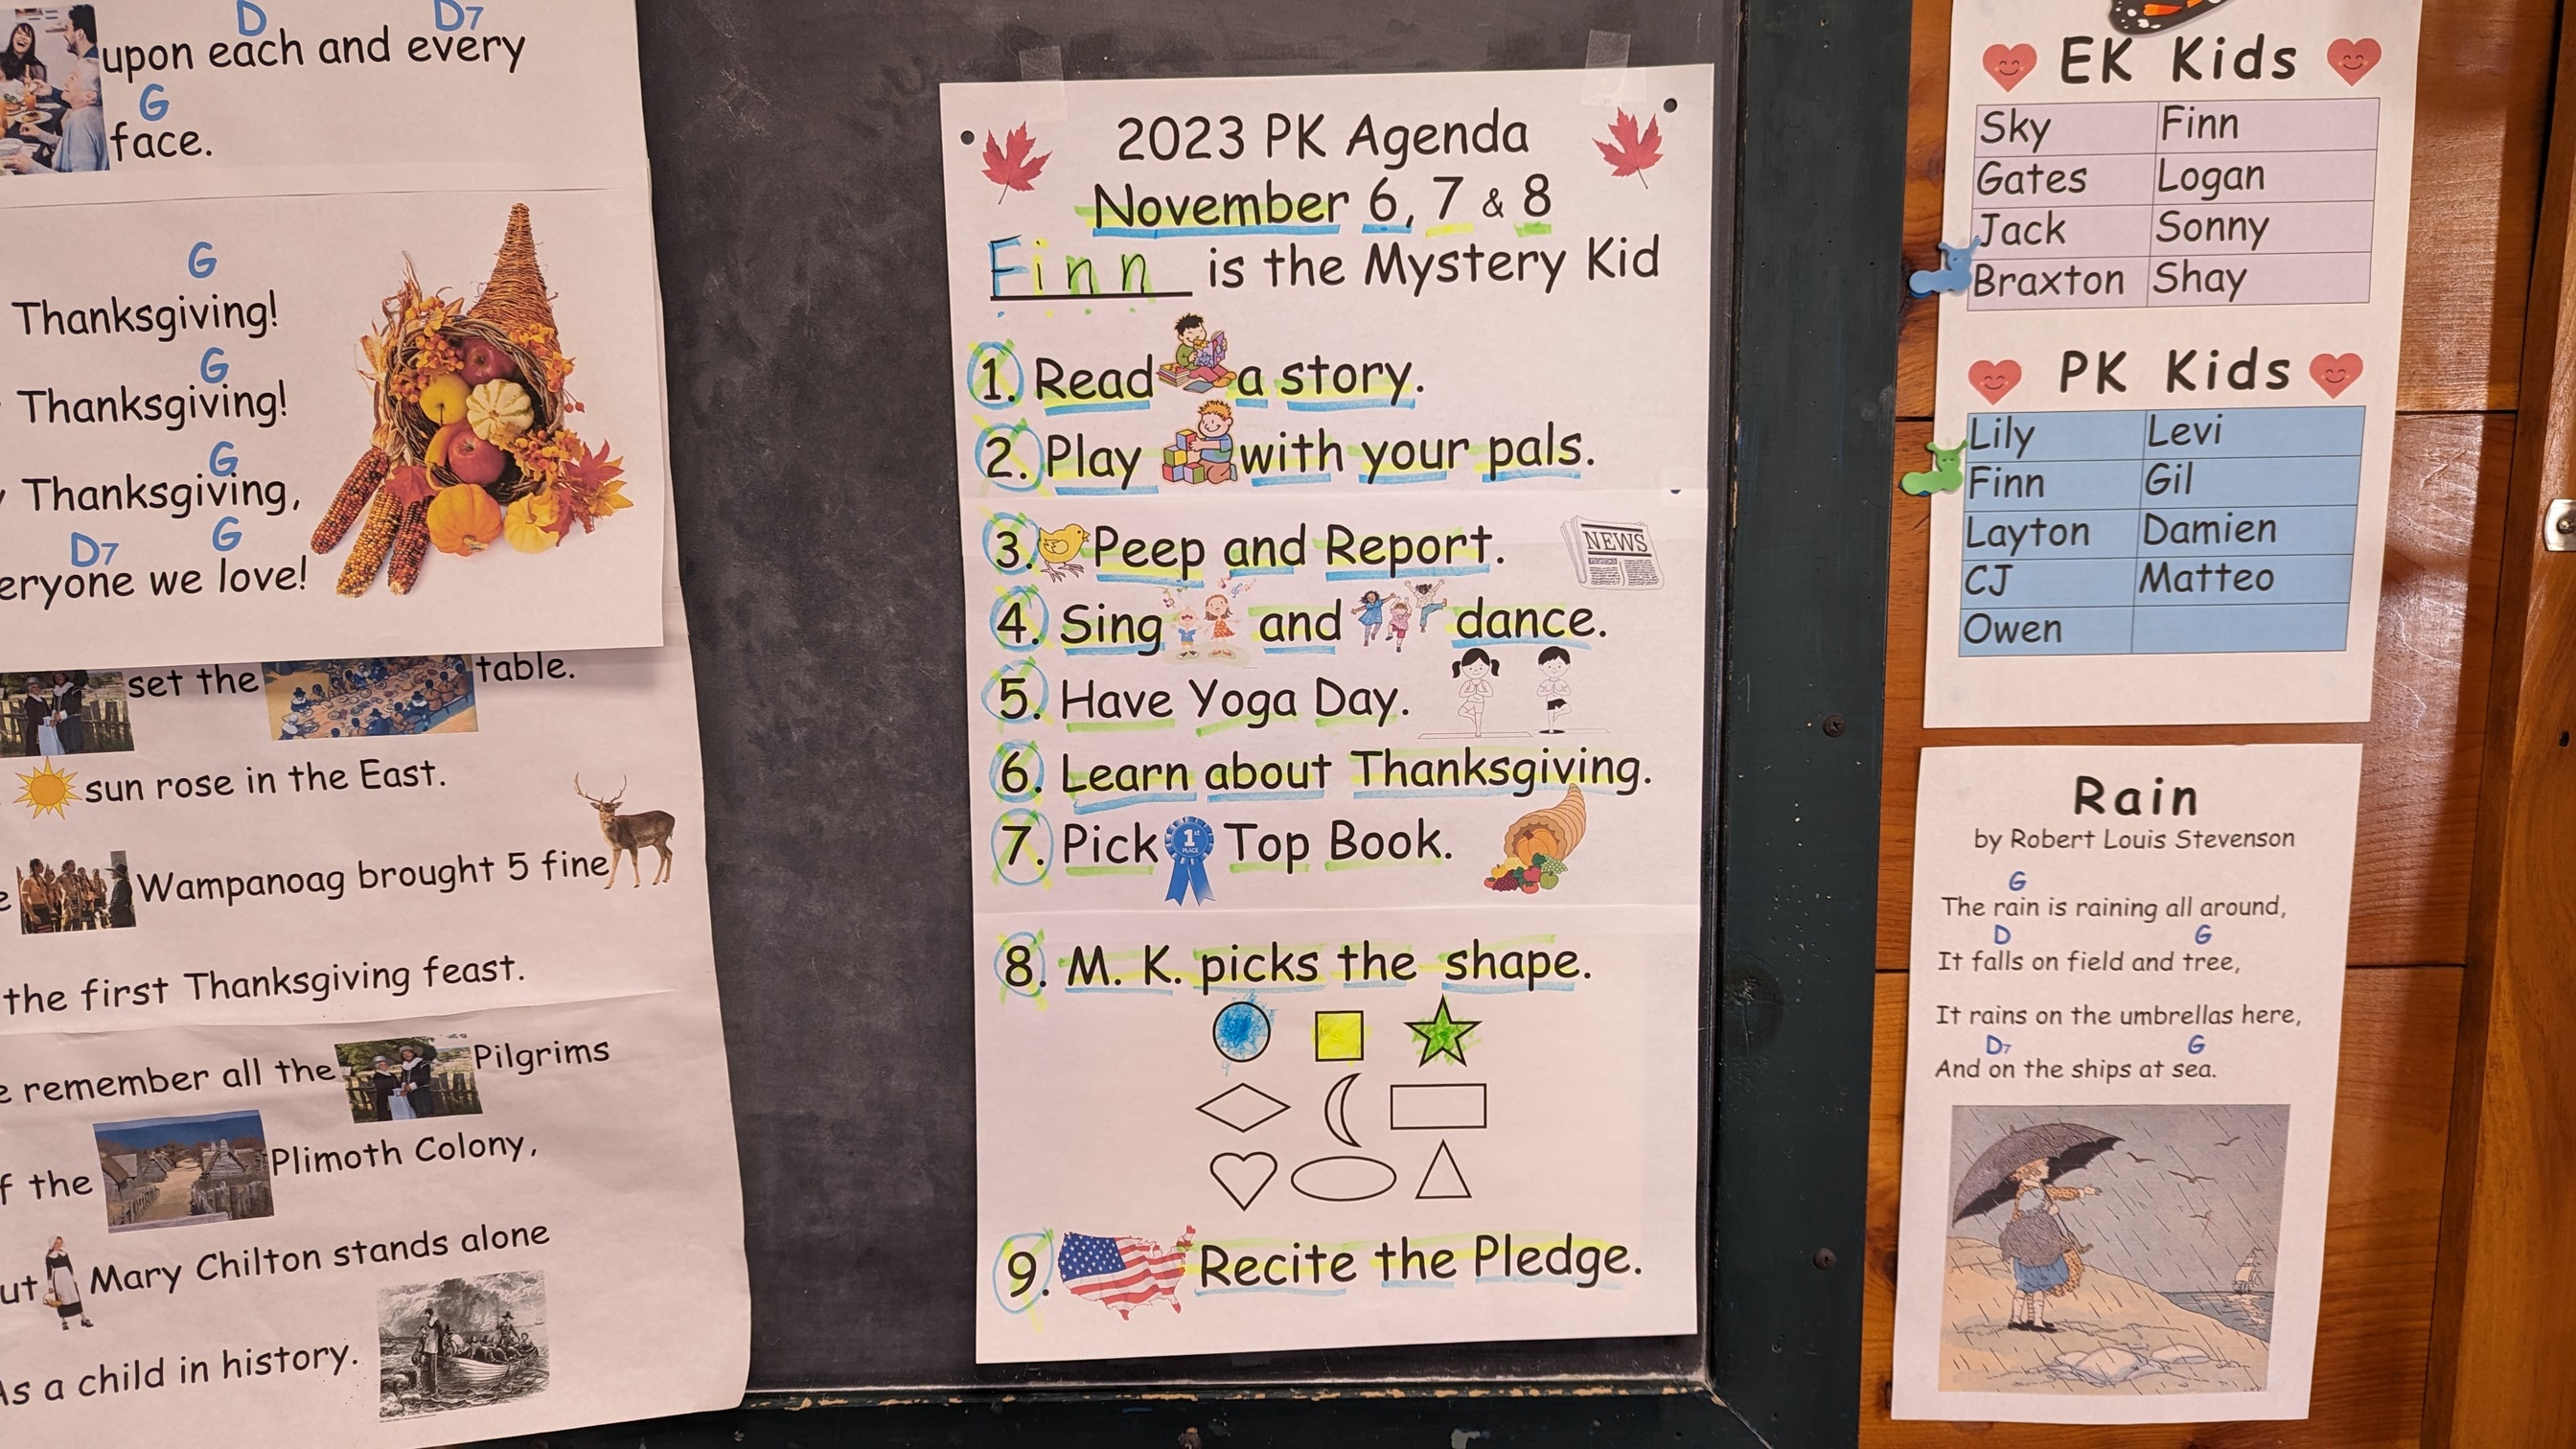 D D7
upon each and every
G
face.
G
Thanksgiving!
G
Thanksgiving!
G
Thanksgiving,
D7 G
eryone we love!
set the table.
sun rose in the East.
Wampanoag brought 5 fine
the first Thanksgiving feast.
remember all the Pilgrims
f the Plimoth Colony,
ut Mary Chilton stands alone
As a child in history.
2023 PK Agenda
November 6, 7 & 8
Finn is the Mystery Kid
1. Read a story.
2. Play with your pals.
3. Peep and Report.
NEWS
4. Sing and dance.
5. Have Yoga Day.
6. Learn about Thanksgiving.
7. Pick 1st PLACE Top Book.
8. M. K. picks the shape.
9. Recite the Pledge.
EK Kids
Sky Finn
Gates Logan
Jack Sonny
Braxton Shay
PK Kids
Lily Levi
Finn Gil
Layton Damien
CJ Matteo
Owen
Rain
by Robert Louis Stevenson
G
The rain is raining all around,
D G
It falls on field and tree,
It rains on the umbrellas here,
D7 G
And on the ships at sea.